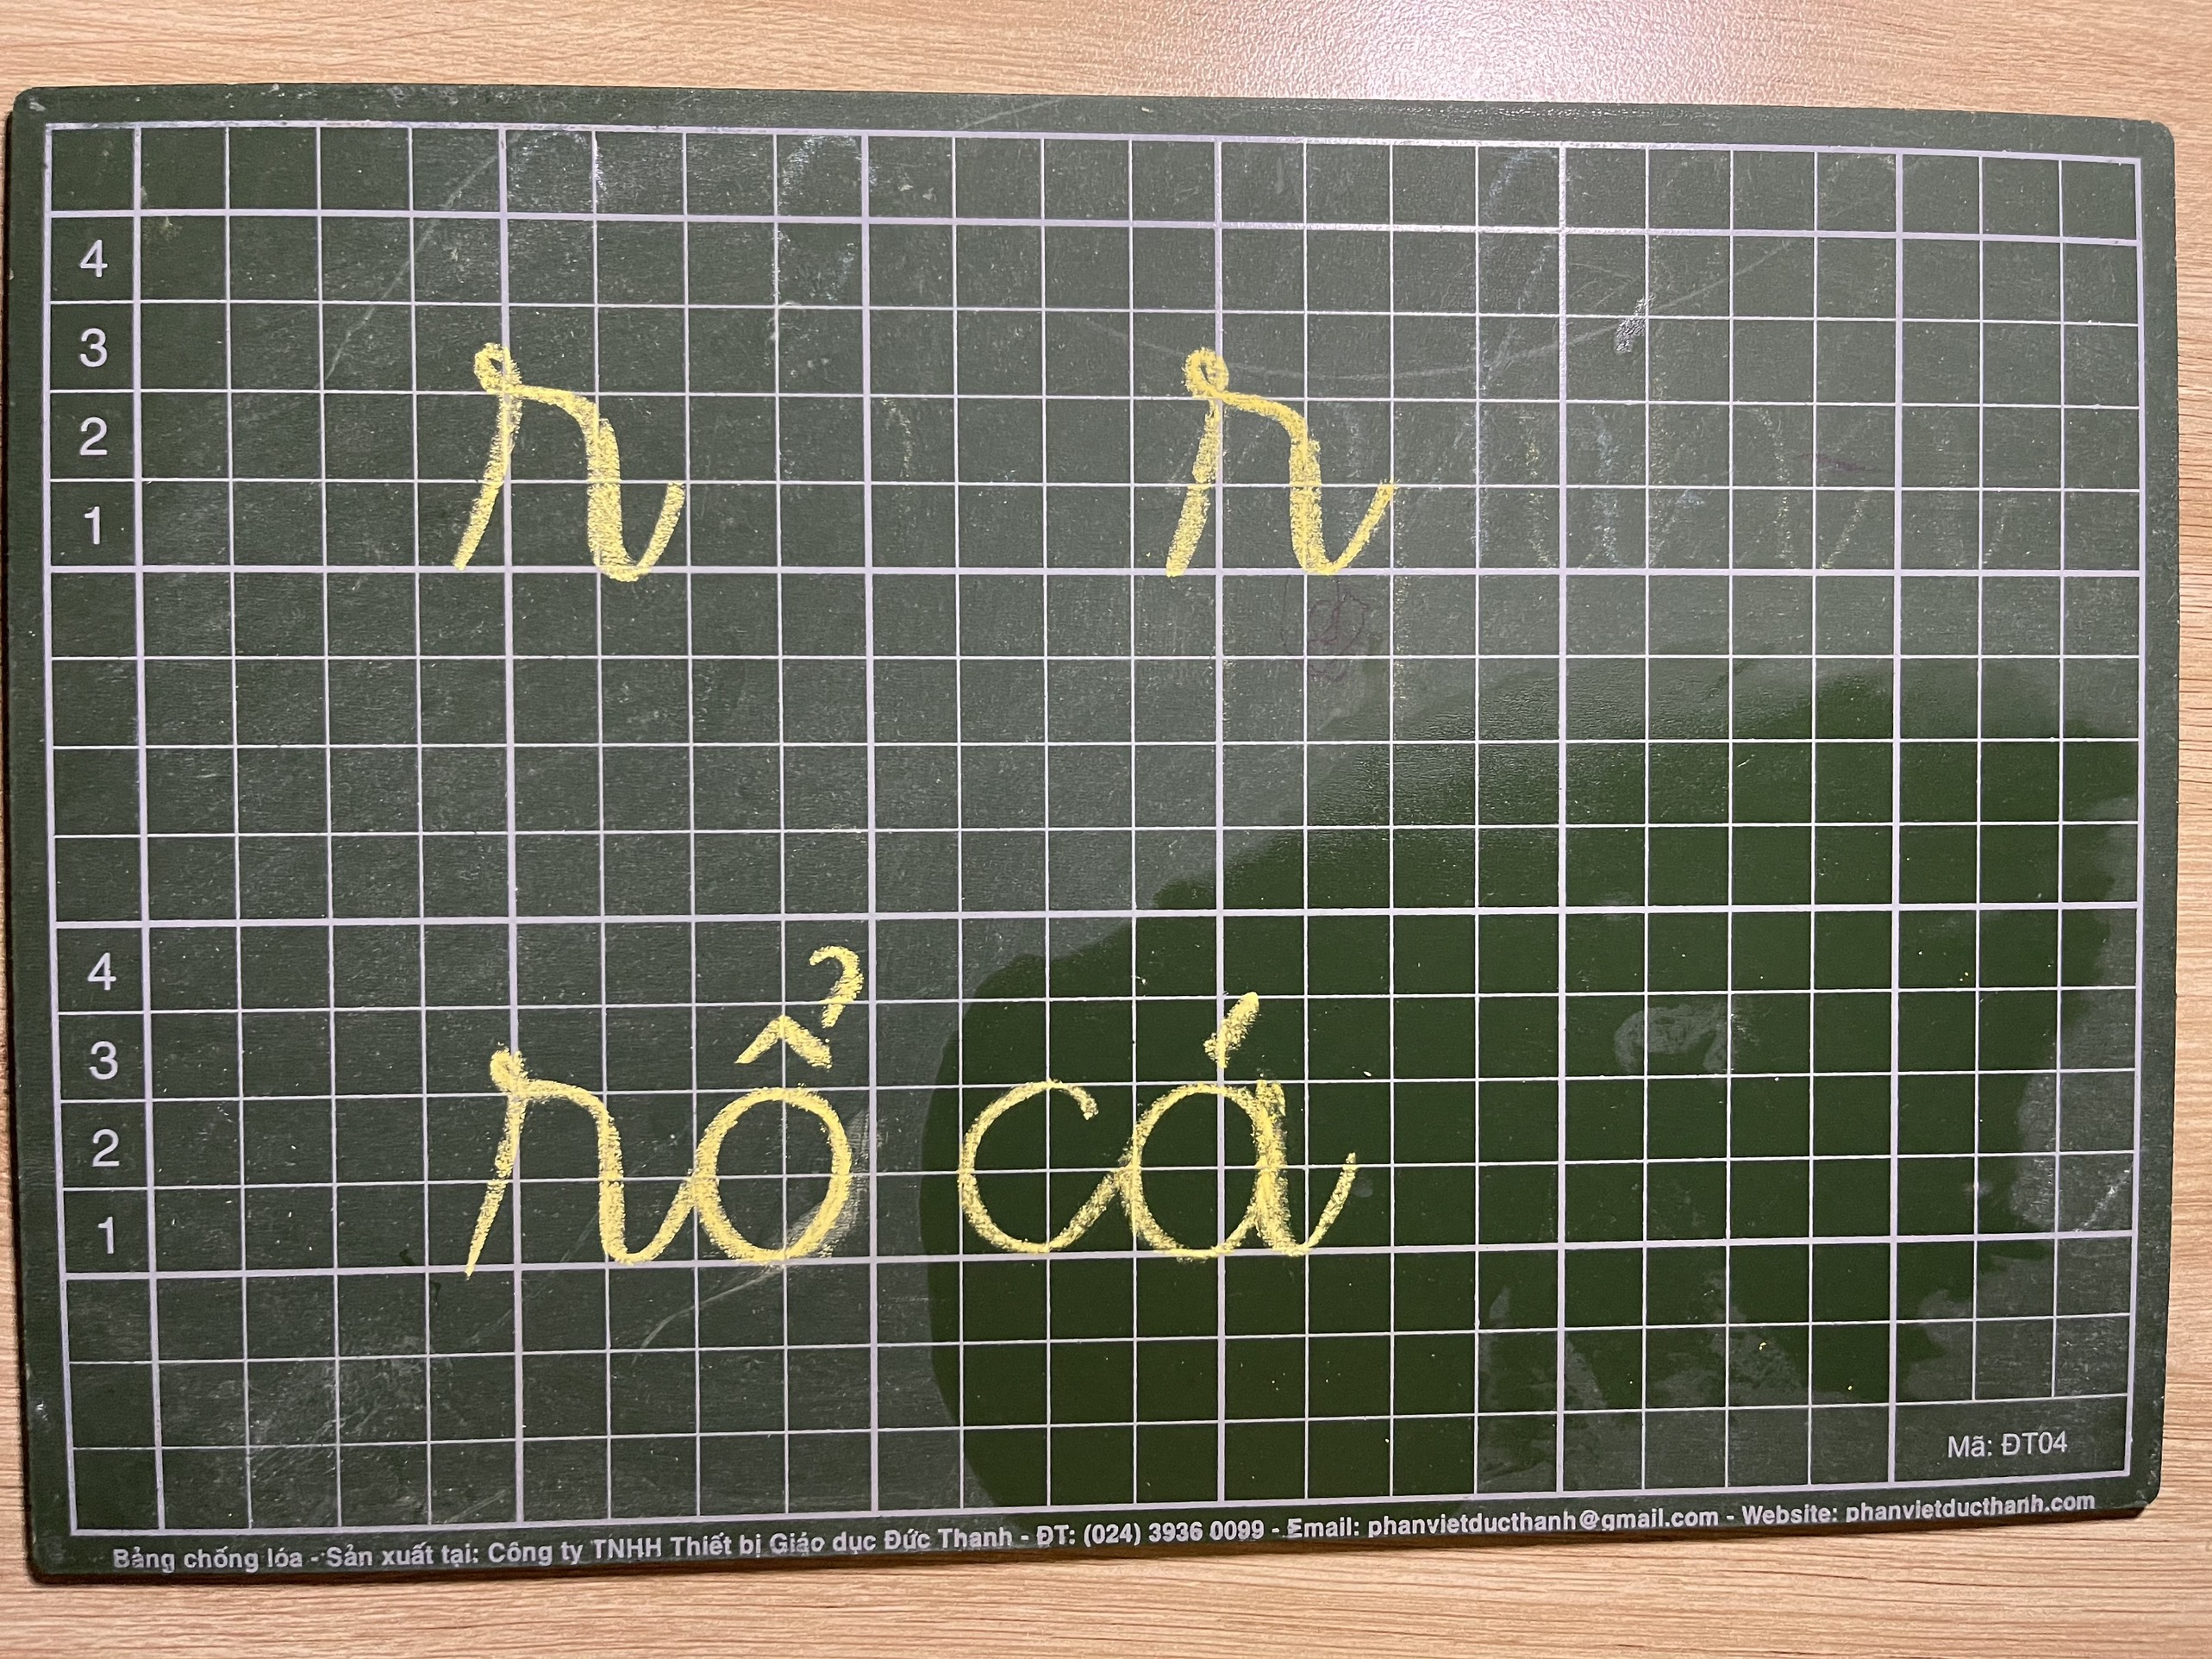 4
3
r r
2
1
4
3
rổ cá
2
1
Mã: ĐT04
Bảng chống lóa - Sản xuất tại: Công ty TNHH Thiết bị Giáo dục Đức Thanh - ĐT: (024) 3936 0099 - Email: phanvietducthanh@gmail.com - Website: phanvietducthanh.com